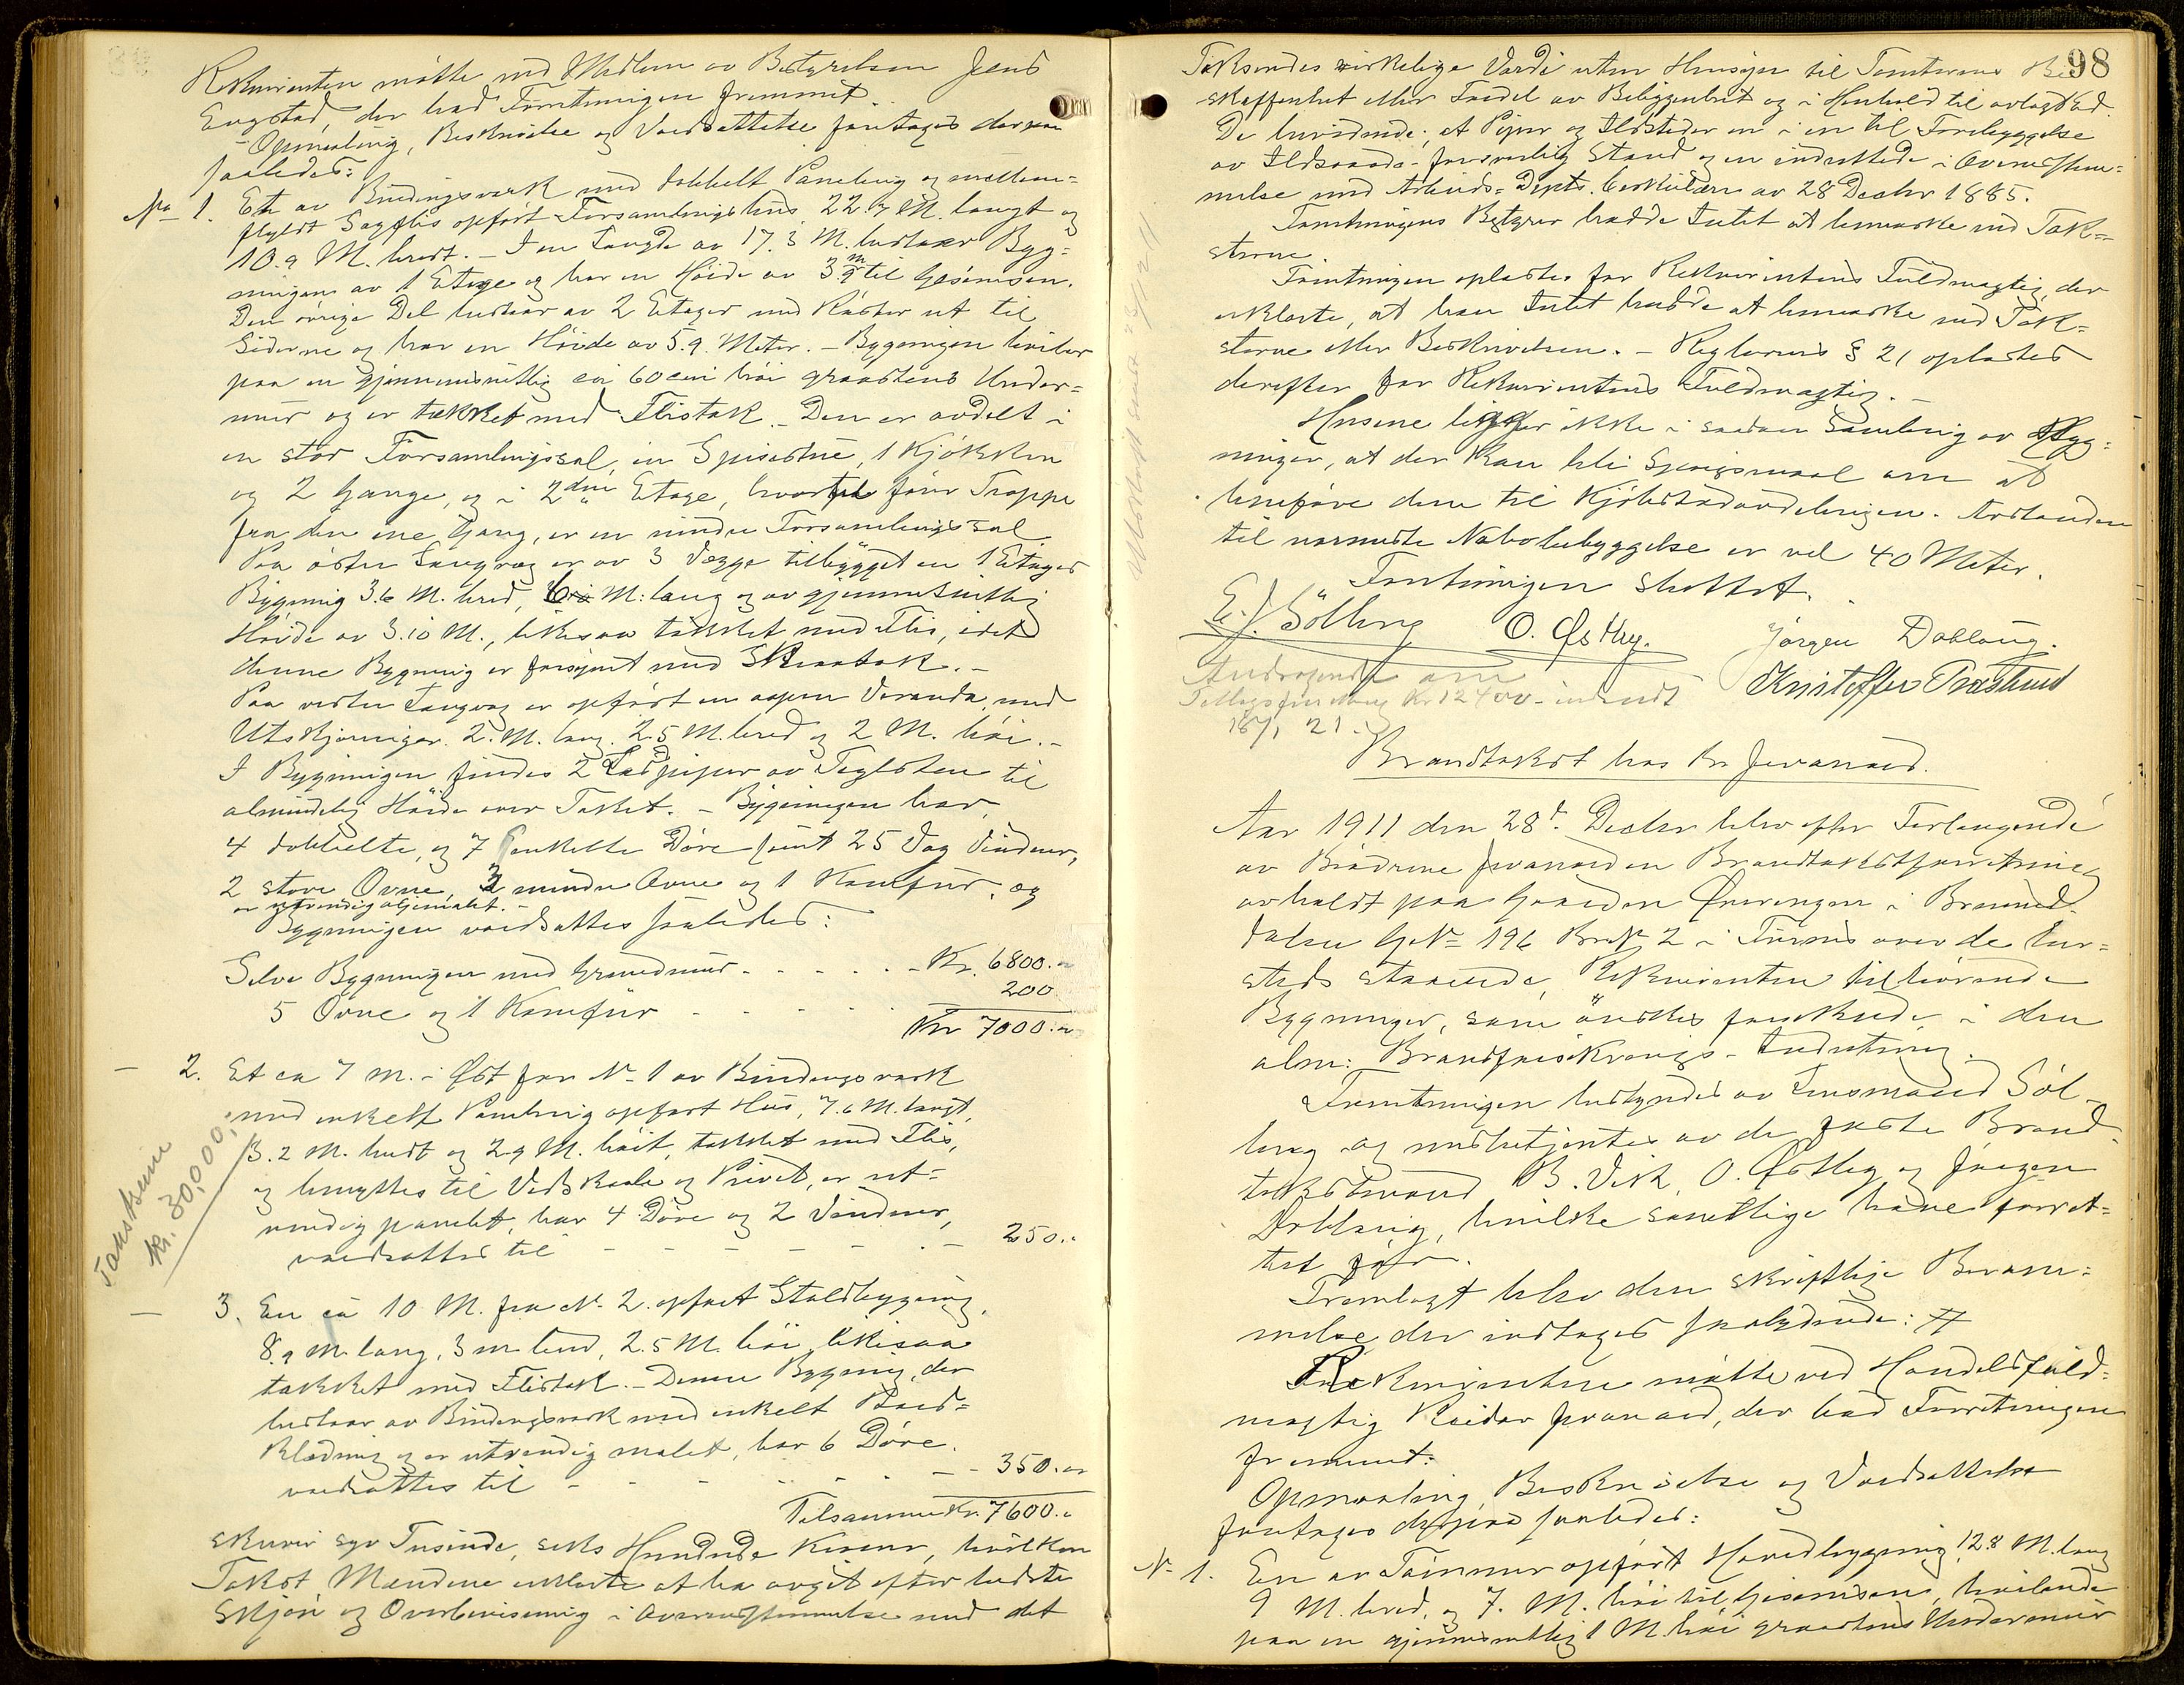 Rekvirenten mötte ved Medlem av Bestyrelsen Jens
Engstad, der bad Forretningen fremmet.
Opmaaling, Beskrivelse og Værdsættelse foretages derpaa
saaledes:
No 1. Et av Bindingsværk med dobbelt Paneling og mellem=
fyldt Sagflis opfört Forsamlingshus 22.7 M. langt og
10.9 M. bredt. – I en Længde av 17.3 M. bestaar Byg=
ningen av 1 Etage og har en Höide av 3.9 m til Gesimsen.
Den övrige Del bestaar av 2 Etager med Röster ut til
Siderne og har en Höide av 5.9. Meter. – Bygningen hviler
paa en gjennemsnitlig 60 cm höi graastens Under=
mur og er tækket med Flistak. – Den er avdelt i
en stor Forsamlingssal, en Spisestue, 1 Kjökken
og 2 Gange, og i 2den Etage, hvortil förer Trappe
fra den ene Gang, er en mindre Forsamlingssal.
Paa östre Langvæg er av 3 Vægge tilbygget en 1 Etages
Bygning 3.6 M. bred, M. lang og av gjennemsnitlig
Höide av 3.10 M., likesaa tækket med Flis, idet
denne Bygning er forsynt med Skraatak. –
Paa vestre Langvæg er opfört en aapen Veranda med
Utskjæringer 2. M. lang, 2.5 M. bred og 2 M. höi. –
I Bygningen findes 2 Ladpiper av Teglsten til
almindelig Höide over Taket. – Bygningen har
4 dobbelte, og 7 enkelte Döre samt 25 Fag Vinduer,
2 store Ovne, 3 mindre Ovne og 1 Komfur, og
er utvendig oljemalet. –
Bygningen værdsættes saaledes:
Selve Bygningen med Grundmur - - - - - - Kr. 6800.00
5 Ovne og 1 Komfur - - - - - 200
Kr 7000.00
– 2. Et ca 7 M. i Öst for No 1 av Bindingsværk
med enkelt Paneling opfört Hus, 7.6 M. langt,
3.2 M. bredt og 2.9 M. höit, tækket med Flis,
og benyttes til Vedskaale og Privet, er ut=
vendig panelet, har 4 Döre og 2 Vinduer,
værdsættes til - - - - - - 250.00
Takstsum
Kr. 30,000,
– 3. En ca 10 M. fra No 2. opfört Staldbygning,
8.9 M. lang, 3 m bred, 2.5 M. höi likesaa
tækket med Flistak. – Denne Bygning, der
bestaar av Bindingsværk med enkelt Bord=
klædning og er utvendig malet, har 6 Döre.
værdsættes til - - - - - - 350.00
Tilsammen Kr. 7600.00
skriver syv Tusinde, seks Hundrede Kroner, hvilken
Takst Mændene erklærte at ha avgit efter bedste
Skjön og Overbevisning i Overensstemmelse med det
98
Taksendes virkelige Værdi uten Hensyn til Tomternes Be
skaffenhet eller Fordel av Beliggenhet og i Henhold til avlagt Ed.
De bevidnede, at Piper og Ildsteder er i en til Forebyggelse
av Ildsvaade forsvarlig Stand og er indrettede i Overensstem=
melse med Arbeids=Depts. Cirkulære av 28 Decbr 1885.
Forretningens Bestyrer hadde Intet at bemærke ved Tak=
sterne.
Forretningen oplæstes for Rekvirentens Fuldmægtig, der
erklærte, at han Intet hadde at bemærke ved Tak=
sterne eller Beskrivelsen. – Reglernes § 21 oplæstes
derefter for Rekvirentens Fuldmægtig. –
Husene ligger ikke i saadan Samling av Byg=
ninger, at der kan bli Spörgsmaal om at
henföre dem til Kjöbstadavdelingen. Avstanden
til nærmeste Nabobebyggelse er vel 40 Meter.
Forretningen sluttet.
E. J. Sölberg O. Östby. Jörgen Doblaug.
Kristoffer Præstrud
Andragende om
Tillægsforsikring Kr 12400 – indsendt
18/1 21.
Brandtakst hos Br Jevanord.
Aar 1911 den 28d. Decbr blev efter Forlangende
av Brödrene Jevanord en Brandtakstforretning
avholdt paa Gaarden Överingen i Brumund=
dalen GNo 196 BrNo 2 i Furnes over de her=
steds staaende, Rekvirenten tilhörende
Bygninger, som önskes forsikrede i den
alm: Brandforsikrings-Indretning.
Forretningen bestyredes av Lensmand Söl=
berg og medbetjentes av de faste Brand=
takstmænd B. Vik, O. Östby og Jörgen
Doblaug, hvilke samtlige have forret=
tet för.
Fremlagt blev den skriftlige Beram=
melse der indtages saalydende: #
Rekvirentene mötte ved Handelsfuld=
mægtig Reidar Jevanord, der bad Forretningen
fremmet.
Opmaaling, Beskrivelse og Værdsættelse
foretages derpaa saaledes:
No 1. En av Tömmer opfört Hovedbygning, 12.8 M. lang
9 M. bred, og 7. M. höi til Gesimsen, hvilende
paa en gjennemsnitlig 1 M. höi graastens Undermur